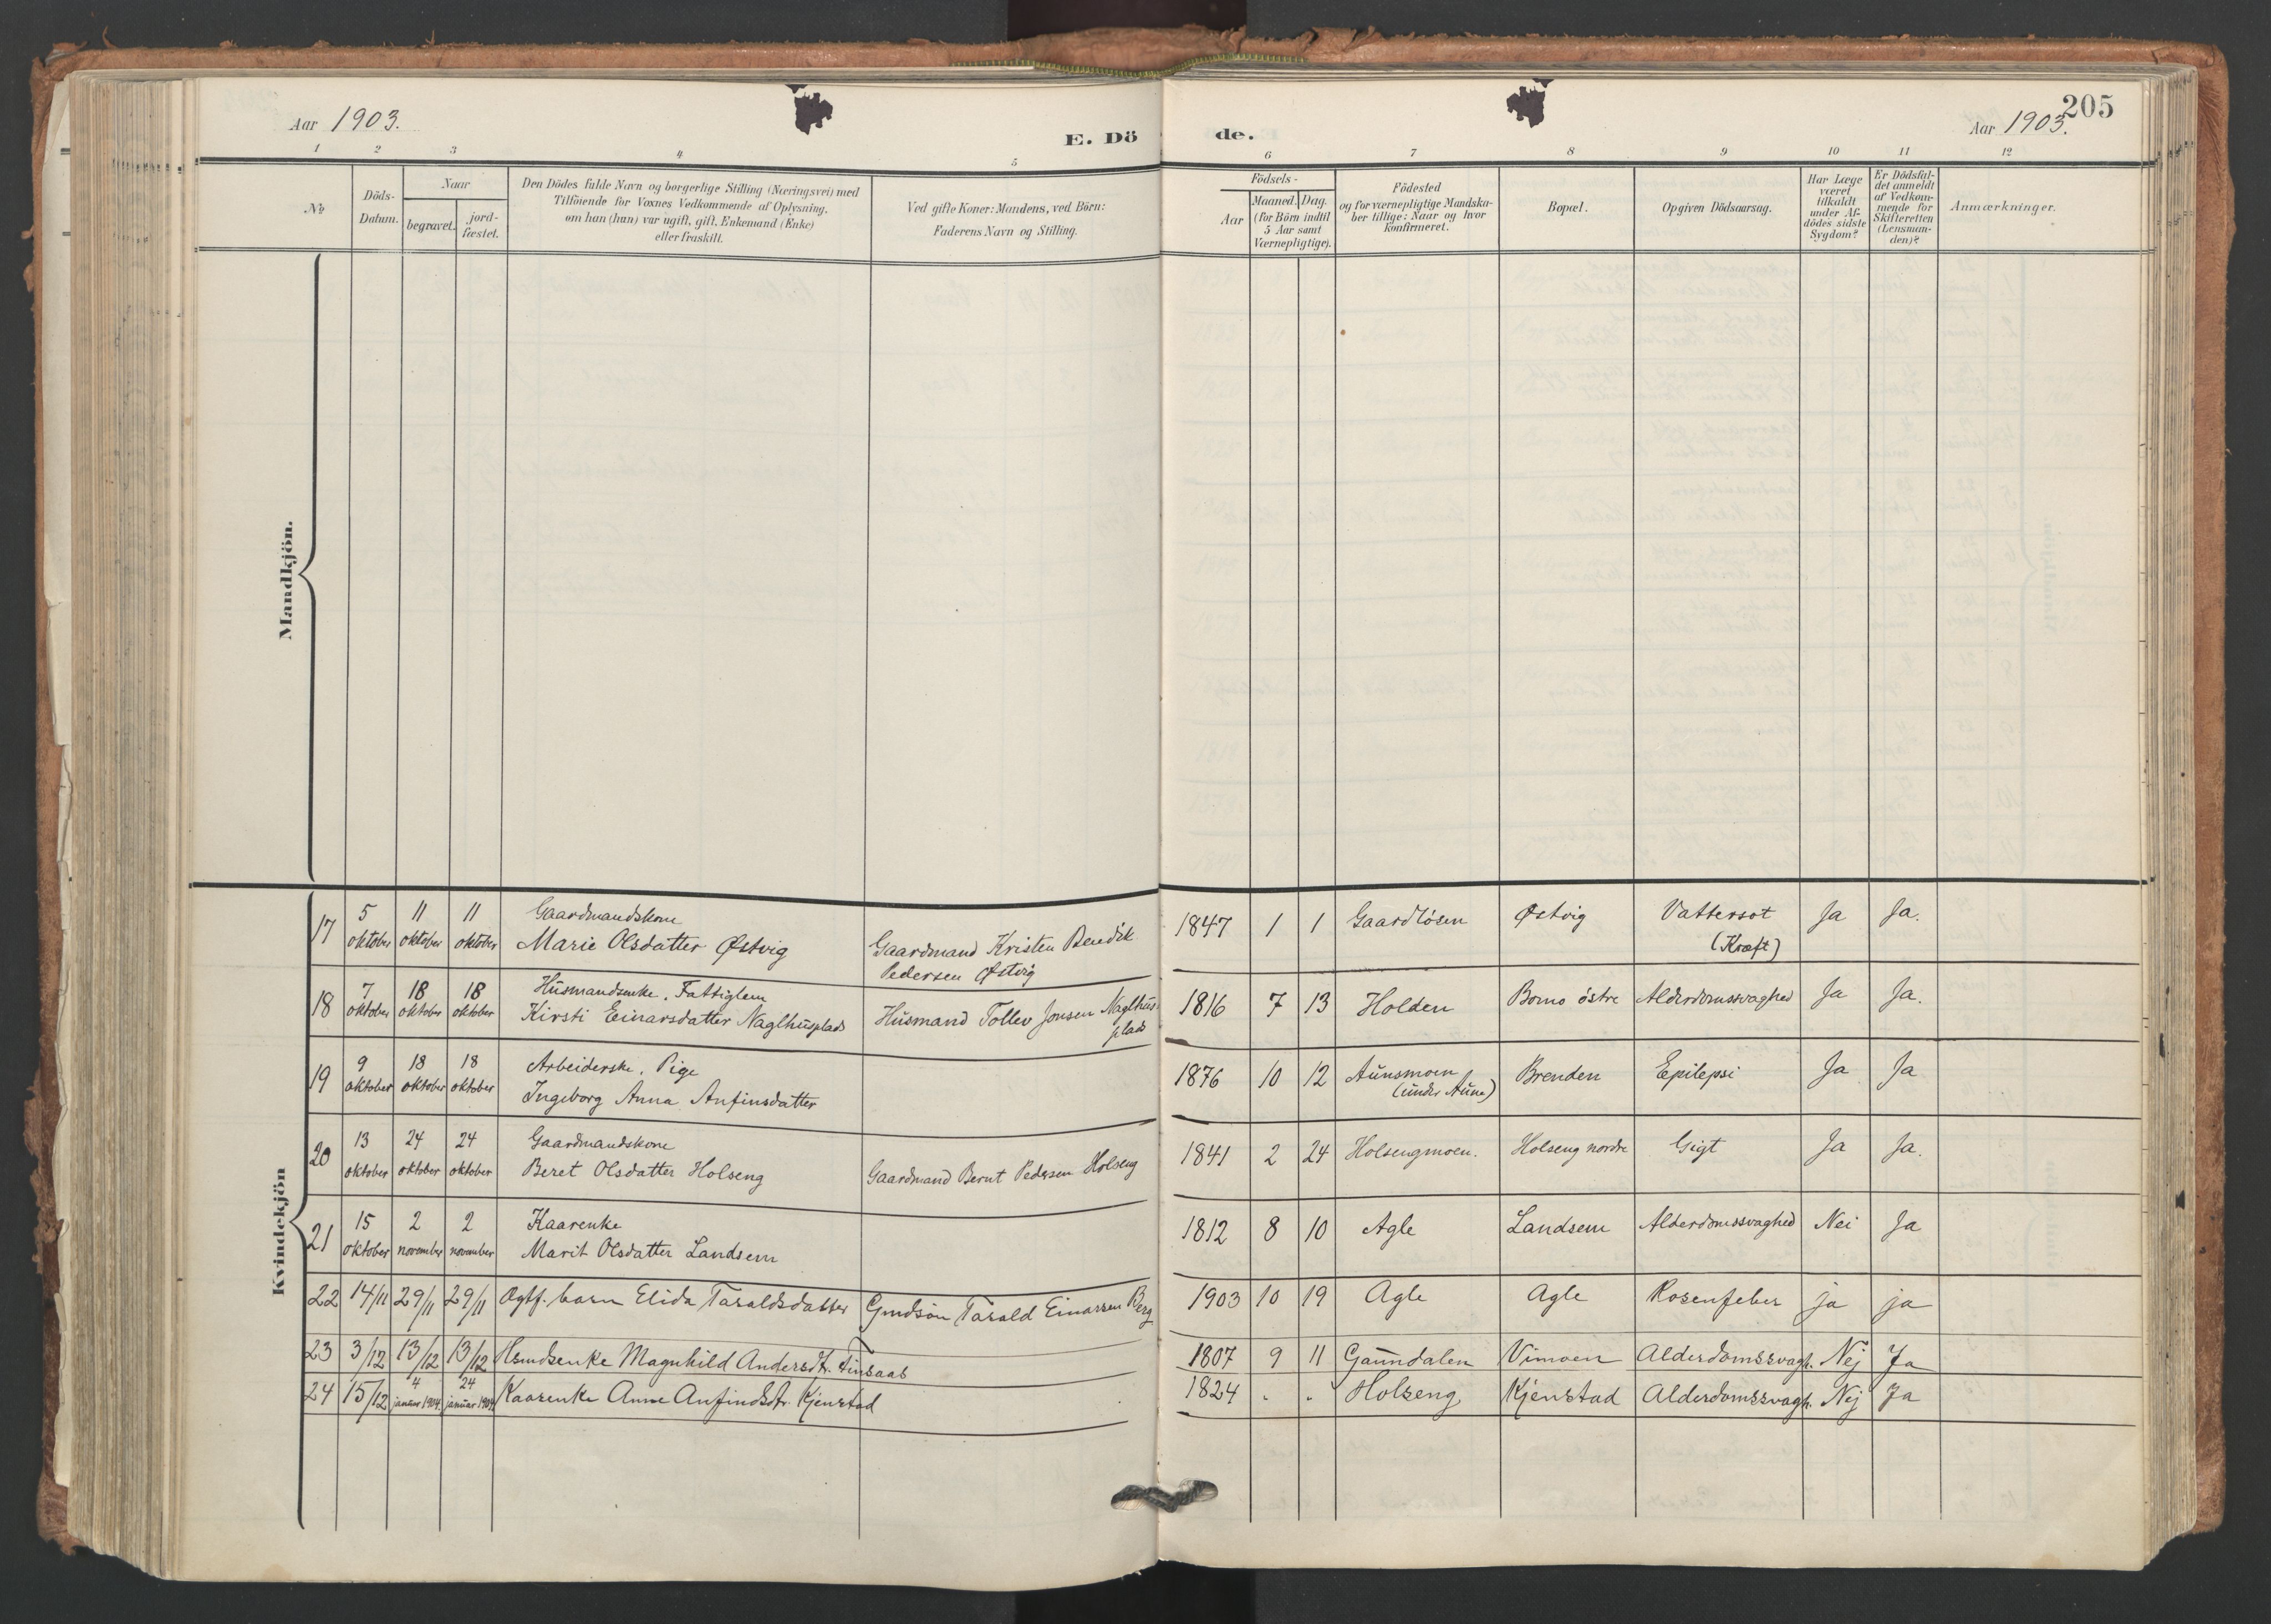 Aar 1903.
E. Dö
de.
205
Aar 1903.
1 2 3 4 5 6 7 8 9 10 11 12
No
Döds-
Datum.
Naar
begravet.
jord-
fæstet.
Den Dödes fulde Navn og borgerlige Stilling (Næringsvei) med
Tilföiende for Voxnes Vedkommende af Oplysning,
om han (hun) var ugift, gift, Enkemand (Enke)
eller fraskilt.
Ved gifte Koner: Mandens, ved Börn:
Faderens Navn og Stilling.
Födsels-
Aar
Maaned. Dag.
(for Börn indtil
5 Aar samt
Værnepligtige).
Födested
og for værnepligtige Mandska-
ber tillige: Naar og hvor
konfirmeret.
Bopæl.
Opgiven Dödsaarsag.
Har Læge
været
tilkaldt
under Af-
dödes sidste
Sygdom?
Er Dödsfal-
det anmeldt
af Vedkom-
mende for
Skifteretten
(Lensman-
den)?
Anmærkninger.
Mandkjön.
Kvindekjön
17 5 oktober 11 oktober 11 oktober Gaardmandskone
Marie Olsdatter Østvig Gaardmand Kristen Benedik
Pedersen Østvig 1847 1 1 Gaardløsen Østvig Vattersot Ja Ja.
(Kræft)
18 7 oktober 18 oktober 18 oktober Húsmandsenke, Fattiglem
Kirsti Einarsdatter Naglhúsplads Húsmand Tollev Jonsen Naglhús-
plads 1816 7 13 Holden Bomo östre Alderdomssvaghed Ja Ja.
19 9 oktober 18 oktober 18 oktober Arbeiderske, Pige
Ingeborg Anna Anfinsdatter 1876 10 12 Aúnsmoen Brenden Epilepsi Ja Ja
(únder Aúne)
20 13 oktober 24 oktober 24 oktober Gaardmandskone
Beret Olsdatter Holseng Gaardmand Bernt Pedersen Holseng 1841 2 24 Holsengmoen. Holseng nordre Gigt Ja Ja.
21 15 oktober 2 november 2 november Kaarenke
Marit Olsdatter Landsem 1812 8 10 Agle Landsem Alderdomssvaghed Nei Ja
22 14/11 29/11 29/11 Ægtf. barn Elida Taraldsdatter Gmdsön Tarald Einarsen Berg 1903 10 19 Agle Agle Rosenfeber ja ja
23 3/12 13/12 13/12 Hsmdsenke Magnhild Andersdt. Finsaas 1807 9 11 Gaundalen Vimoen Alderdomssvagh. Nej Ja
24 15/12 4 januar 1904 24 januar 1904 Kaarenke Anne Anfindsdt. Kjenstad 1824 . . Holseng Kjenstad Alderdomssvagh. Nej Ja